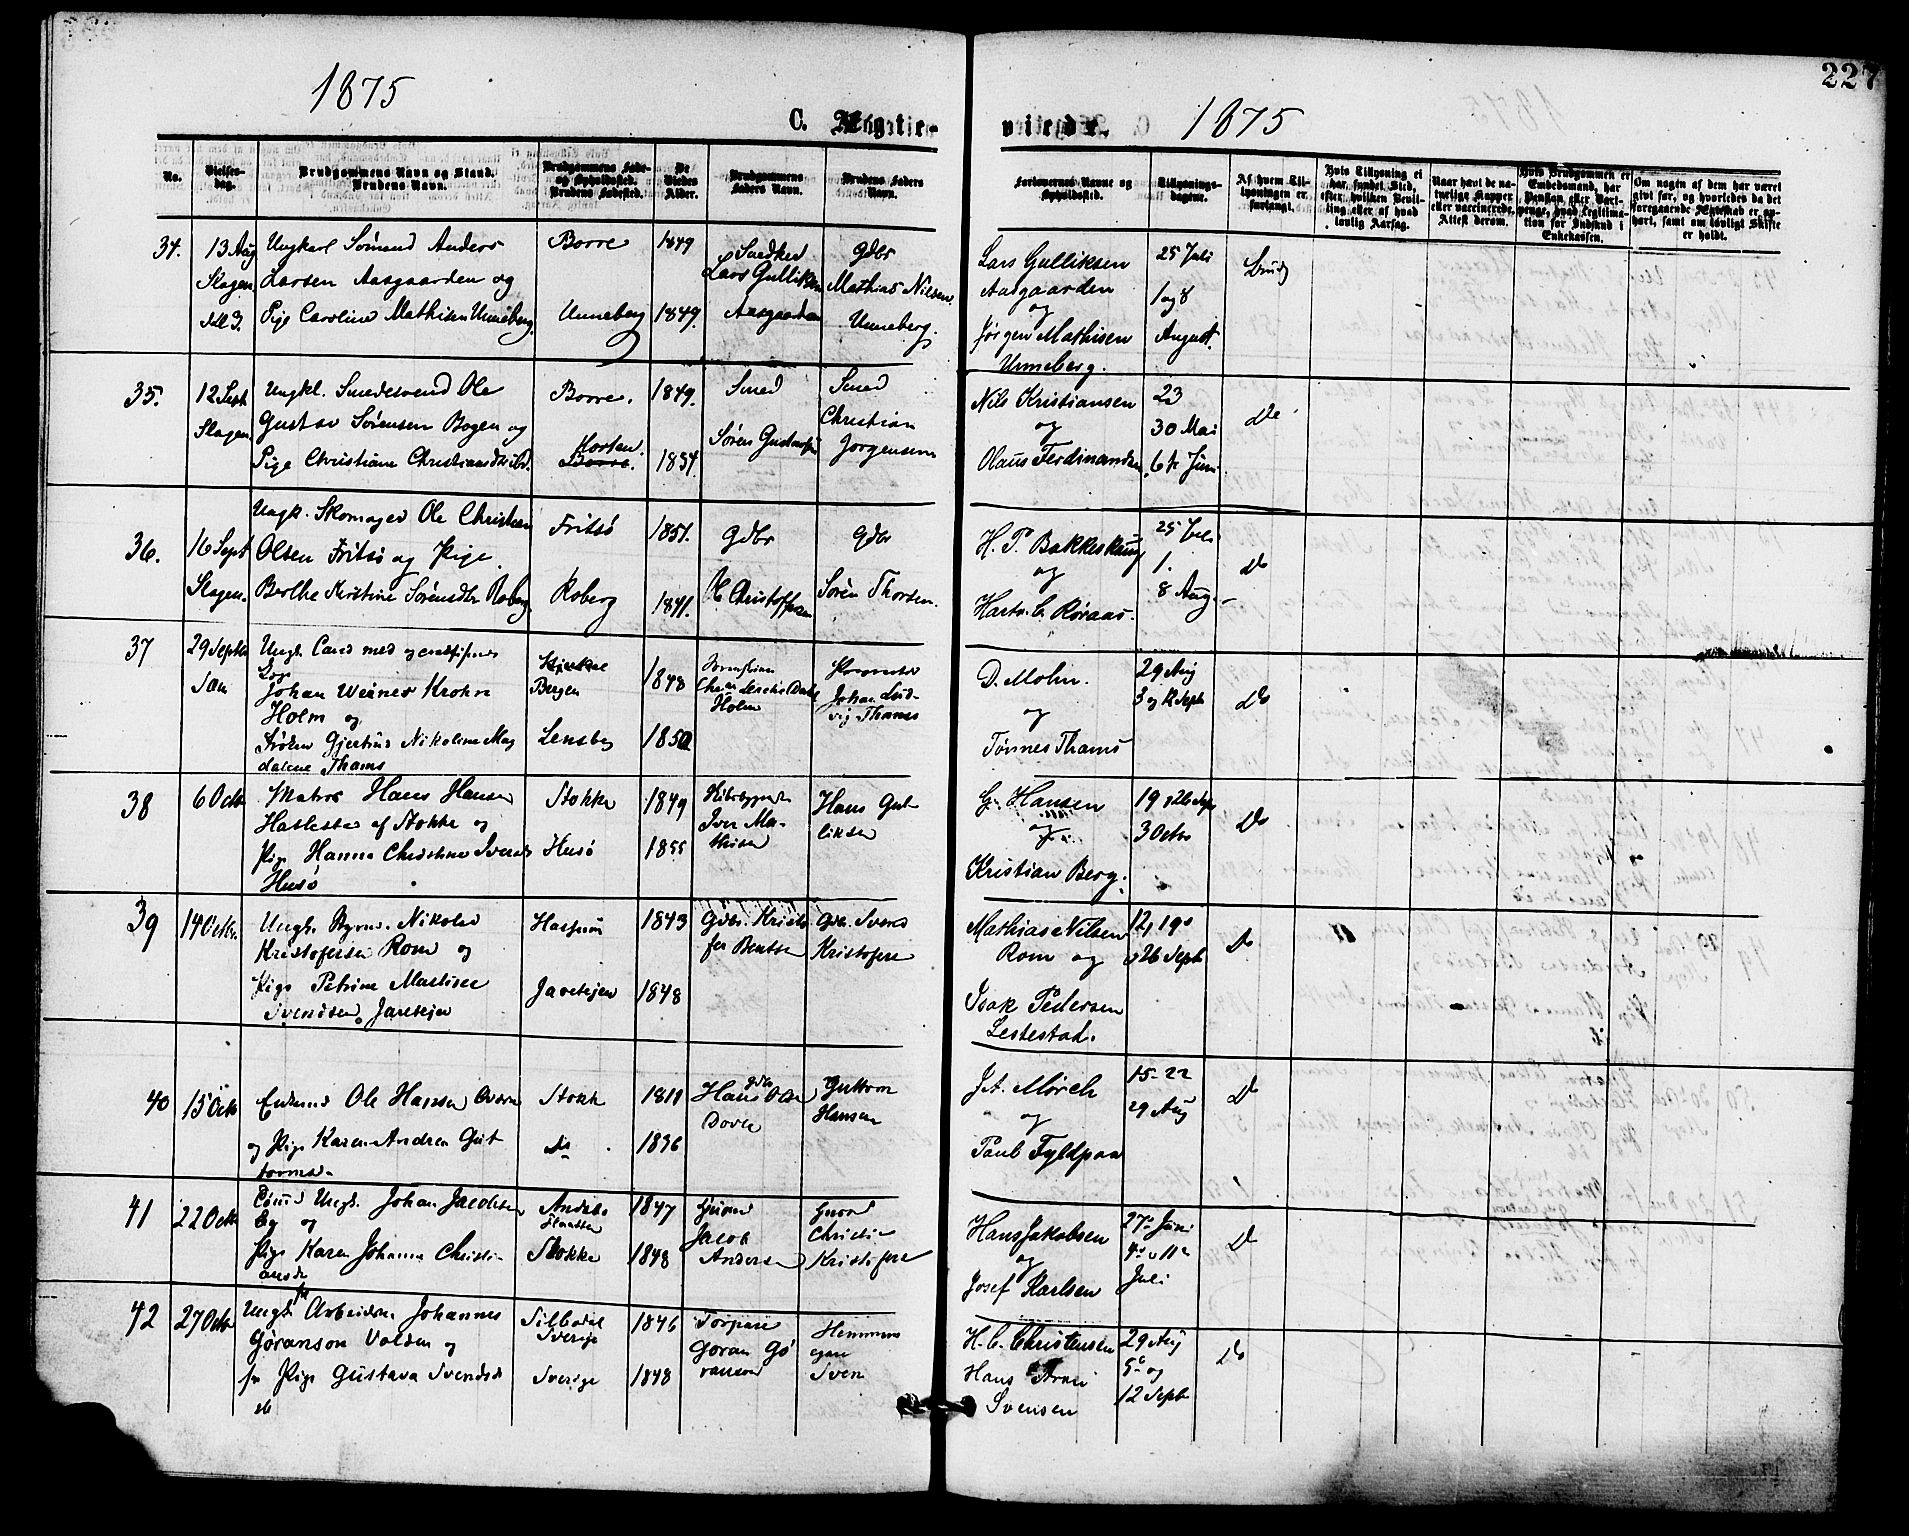 1875
C. Ægte-
viede.
1875
227
No.
Vielses-
dag.
Brudgommens Navn og Stand.
Brudens Navn.
Brudgommens Føde-
og Opholdssted.
Brudens Fødested.
De
Viedes
Alder.
Brudgommens
Faders Navn.
Brudens Faders
Navn.
Forlovernes Navne og
Opholdssted.
Tillysnings-
dagene.
Af hvem Til-
lysningen er
forlangt.
Hvis Tillysning ei
har fundet Sted,
efter hvilken Bevil-
ling eller af hvad
lovlig Aarsag.
Naar havt de na-
turlige Kopper
eller vaccinerede,
Attest derom.
Hvis Brudgommen er
Embedsmand, har
Pension eller Vart-
penge, hvad Legitima-
tion for Indskud i
Enkekassen.
Om nogen af dem har været
gift før, og hvorledes da det
foregaaende Ægteskab er op-
hørt, samt om lovligt Skifte
er holdt.
34.
13 Aug
Slagen
Ungkarl Sömand Anders
Larsen Aasgaarden og
Pige Caroline Mathisen Unneberg
Borre
Unneberg
1849
1849.
Snedker
Lars Gulliksen
Aasgaarden
Gdbr
Mathias Nilsen
Unneberg.
Lars Gulliksen
Aasgaarden
og
Jörgen Mathisen
Unneberg.
25 Juli
1 og 8
August.
Brud
35.
12 Sept
Slagen.
Ungkl. Smedesvend Ole
Gustav Sørensen Bogen og
Pige Christiane Christiansdtr
Borre.
Horten.
Borre.
1849.
1854.
Smed
Søren Gustavsen
Smed
Christian
Jorgensen
Nils Kristiansen
og
Olaus Ferdinandsen
23
30 Mai
6te Juni
Do
36.
16 Sept
Slagen.
Ungk. Skomager Ole Christian
Olsen Fritsö og Pige
Berthe Kristine Sørensdtr Roberg
Fritsö
Roberg
1851.
1841.
Gdbr
Ole Christoffersen
Gdbr
Sørén Thorsen.
H. P. Bakkeskaug
og
Hartv. C. Røraas.
25 Juli
1.
8 Aug.
Do
37
29 Septbr
Sem
Ungk. Cand med og
Johan Werner Krohn
Holm og
Frøken Gjertrud Nikoline Mag
dalene Thams
Bergen
1848
1850
Holm
Johan Lud-
vig Thams
D. Mohn.
og
Tönnes Thams
29 Aug
3 og 12 Septb
Do
38
6 Octb
Matros Hans Hansen
af Stokke og
Pige Hanna Christine Iversdtr
Husö
Stokke
Husö
1849
1855
Iver Ma-
thisen
Hans Gul-
liksen
G. Hansen
og
Kristian Berg.
19 o 26 Sep
3 Octb
Do
39
14 Octbr
Kristofersen Rom og
Pige Petrine Martine
Svendsen Jaretejen
Jareteien
1843
1848
Gdbr. Kristo
fer Bentsen
Gdbr. Svend
Kristofers
Mathias Nilsen
Rom og
Isak Pedersen
Lestestad.
12, 19 o
26 Septb
Do
40
15 Octb
Enkmd Ole Hansen
og Pige Karen Andrea Gut
tormsd.
Stokk
Do
1811
1836
Gdbr
Hans Olsen
Guttorm
Hansen
J. A. Mörch
og
Paul Fyldpaa
15-22
29 Aug
Do
41
22 Octb
Ungk. Johan Jacobsen
og
Pige Karen Johanne Christi-
ansdtr
Andebo
Stokke
1847
1848
Jacob
Andersen
Christian
Kristofersen
Hans Jakobsen
og
Josef Karlsen
27 Juni
4 o 11
Juli
Do
42
27 Octb
Ungk. Arbeidsm. Johannes
Göranson Valden og
Pige Gustava Svendsd
Sillbodal
Sverige
Sverige
1846
1848
Torpare
Göran Gö
ranson
Hemmans
egare
Sven
H. C. Christensen
Hans
Svensen
29 Aug
5 og
12 Septb
Do